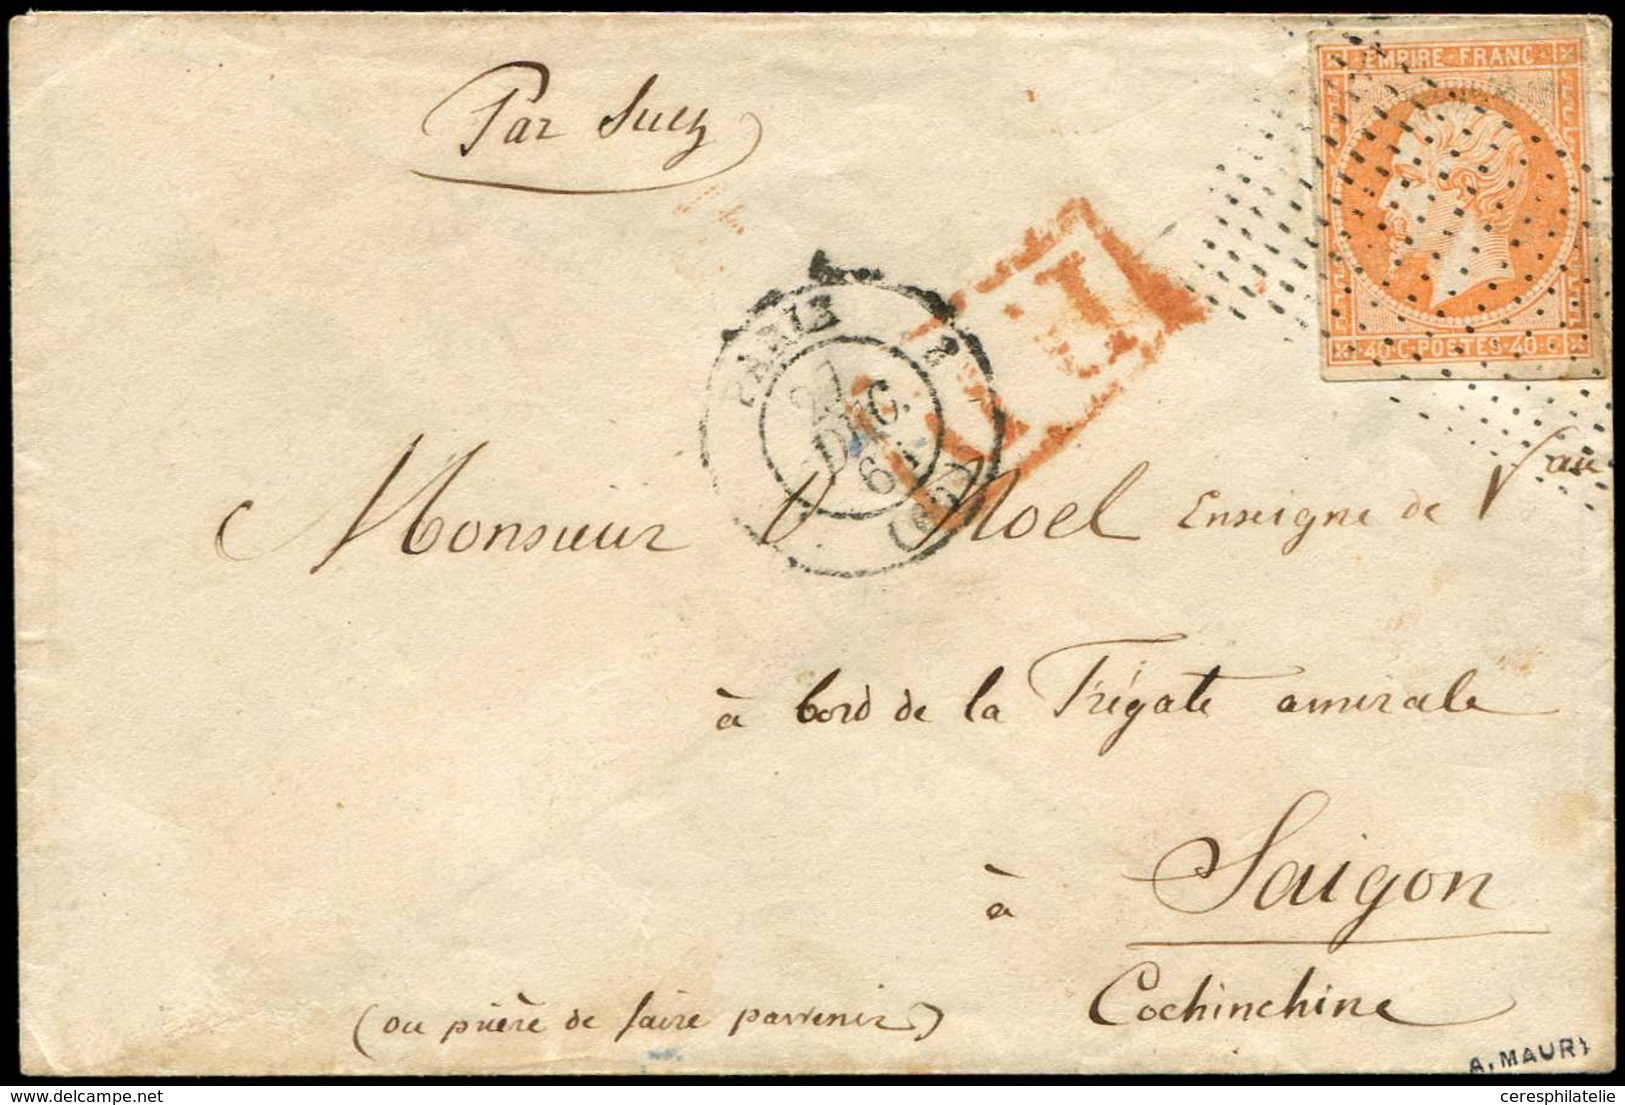 Par Suez
EMPIRE FRANC
40 C POSTES 40 C
PARIS
2
27
DEC.
61
(60)
Monsieur Noel Enseigne de Vau
à bord de la Frégate amirale
à Saigon
Cochinchine
(ou prière de faire parvenir)
A. MAURY
delcampe.net
ceresphilatelie